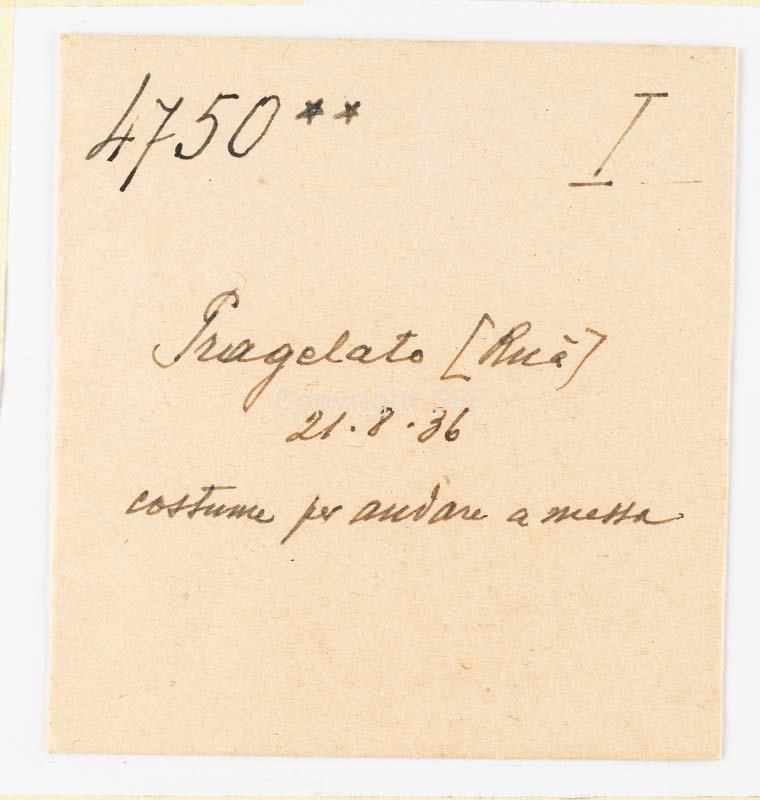 4750** I
Pragelato [Ruà]
21.8.36
costume per andare a messa